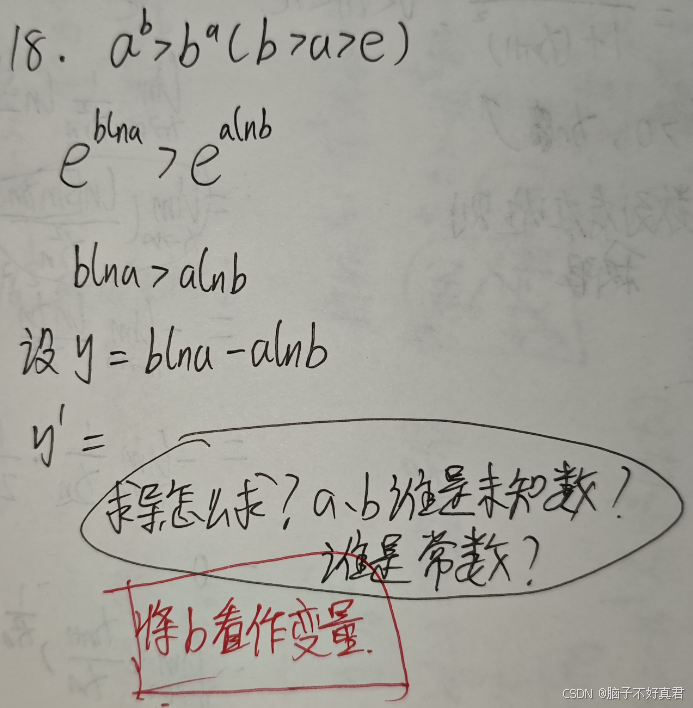 18. a^b>b^a(b>a>e)
e^{blna}>e^{alnb}
blna>alnb
设y=blna-alnb
y'=
求导怎么求?a、b谁是未知数?
谁是常数?
将b看作变量.
CSDN @脑子不好真君